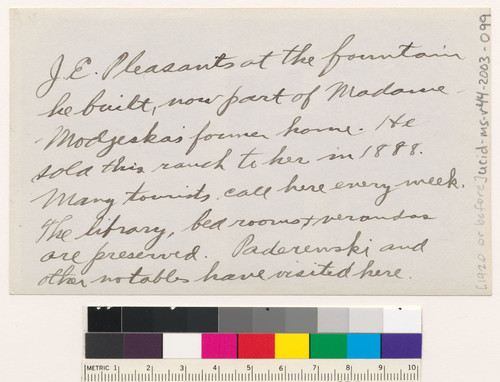 J.E. Pleasants at the fountain
he built, now part of Madame
Modjeska's former home. He
sold this ranch to her in 1888.
Many tourists call here every week.
The library, bed rooms & verandas
are preserved. Paderewski and
other notables have visited here.
[1920 or before] ucid-ms-r44-2003-099
METRIC 1 2 3 4 5 6 7 8 9 10